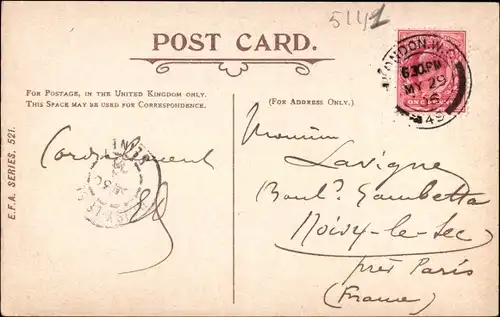 5141
POST CARD.
FOR POSTAGE, IN THE UNITED KINGDOM ONLY.
THIS SPACE MAY BE USED FOR CORRESPONDENCE.
(FOR ADDRESS ONLY.)
LONDON. W.C
6.30 PM
MY 29
49
ONE PENNY
E.F.A. SERIES. 521.
Cordialement
Monsieur
Lavigne
Boulᵈ. Gambetta
Noisy-le-Sec
près Paris
(France)